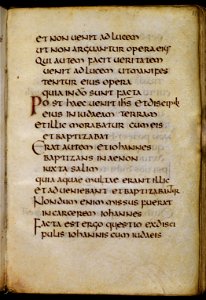 et non uenit ad lucem
ut non arguantur opera eius
Qui autem facit ueritatem
uenit ad lucem ut manifes
tentur eius opera
quia in do sunt facta
Post haec uenit ihs et discipuli
eius in iudaeam terram
et illic morabatur cum eis
et baptizabat
Erat autem et iohannes
baptizans in aenon
iuxta salim
quia aquae multae erant illic
et adueniebant et baptizabantur
Nondum enim missus fuerat
in carcerem iohannes
Facta est ergo questio ex disci
pulis iohannis cum iudaeis